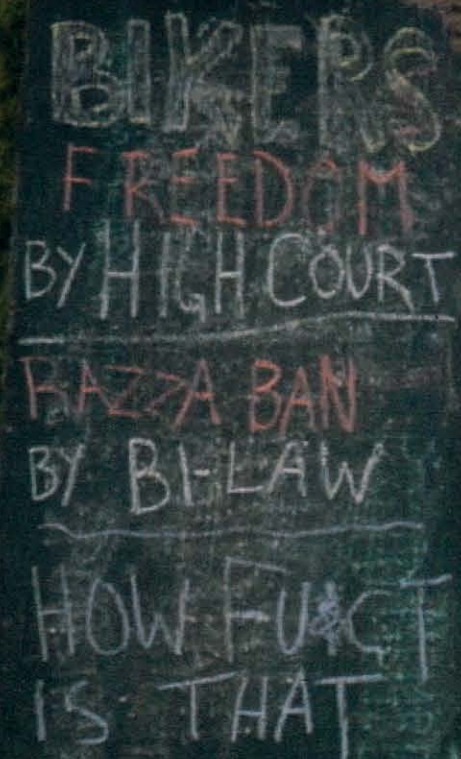 BIKERS
FREEDOM
BY HIGH COURT
BAZZA BAN
BY BI-LAW
HOW FU&CT
IS THAT